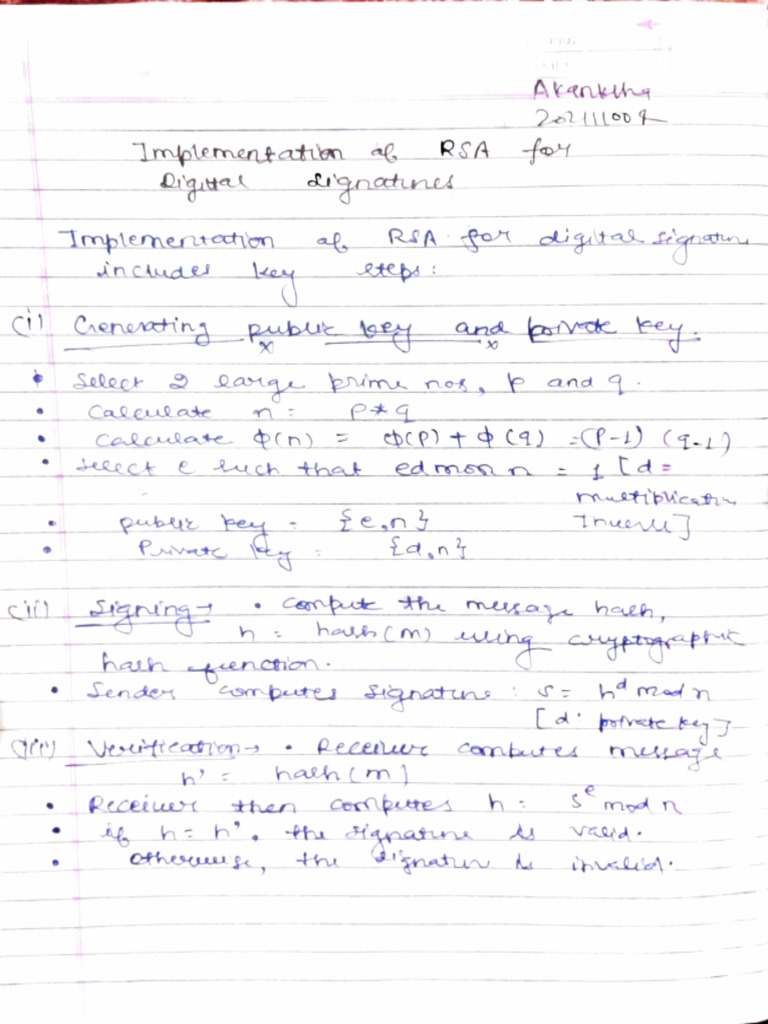 Akanksha
202111009
Implementation of RSA for
Digital Signatures
Implementation of RSA for digital signature
includes key steps:
(i) Generating public key and private key.
• Select 2 large prime nos, p and q.
• Calculate n = p*q
• Calculate Φ(n) = Φ(p) + Φ(q) = (p-1) (q-1)
• Select e such that ed mod n = 1 [d =
multiplicative
Inverse]
• public key = {e,n}
• Private key = {d,n}
(ii) Signing → • compute the message hash,
h = hash(m) using cryptographic
hash function.
• Sender computes signature: s = h^d mod n
[d: private key]
(iii) Verification → • Receiver computes message
h' = hash(m)
• Receiver then computes h = s^e mod n
• if h = h', the signature is valid.
• otherwise, the signature is invalid.